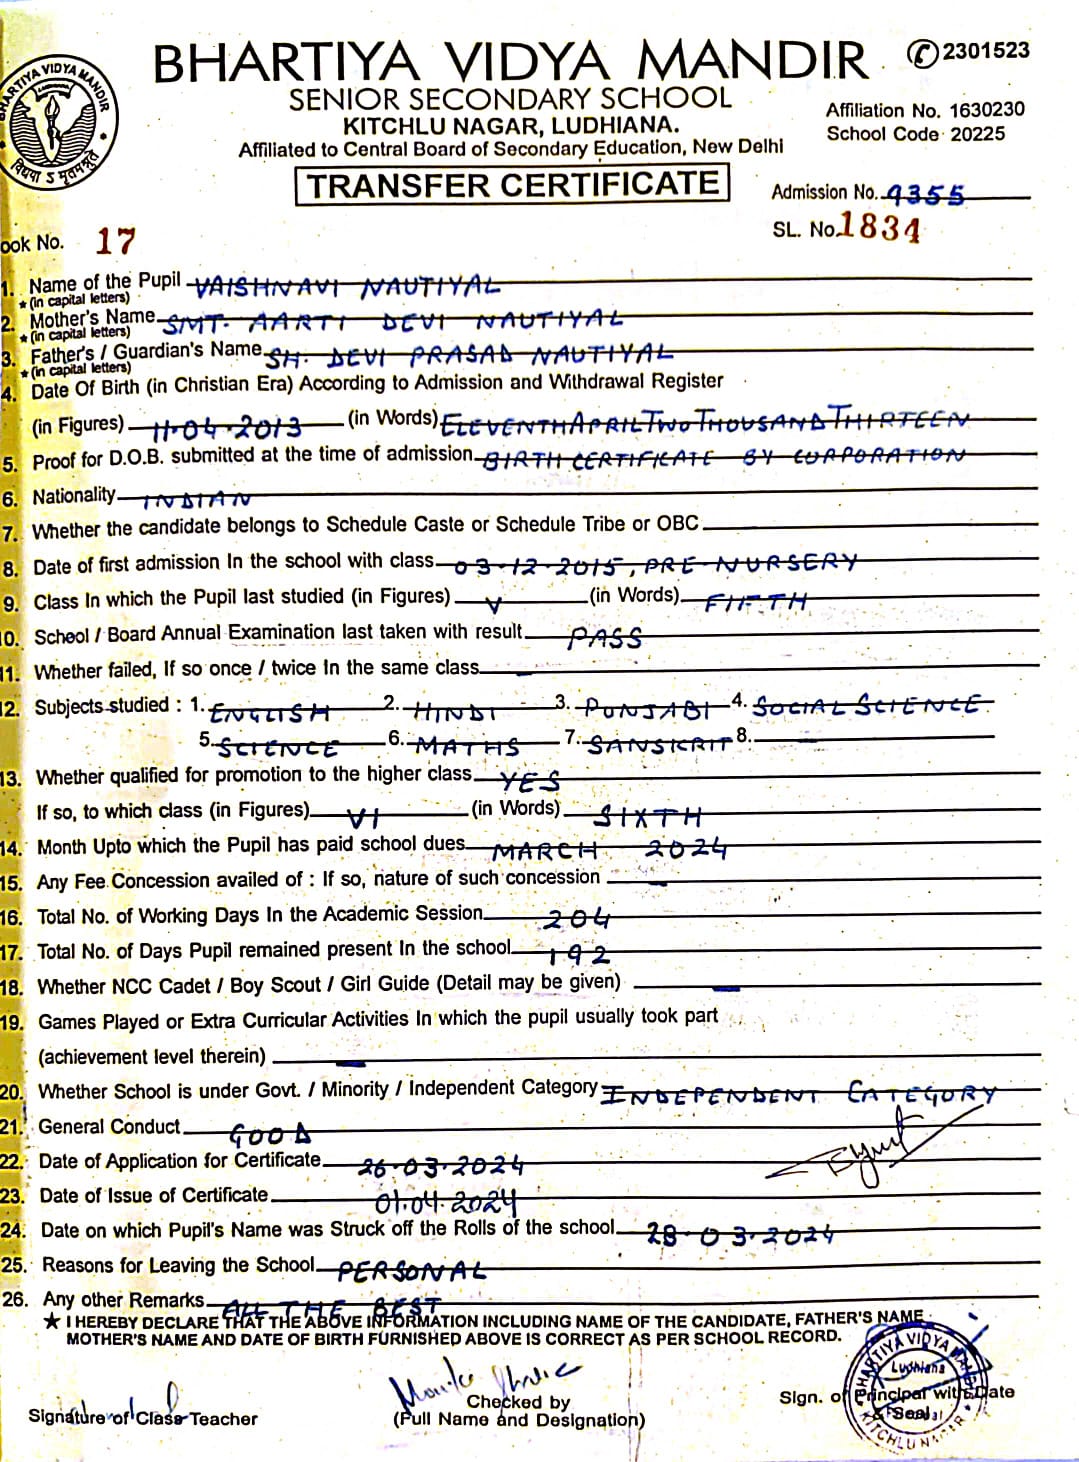 BHARTIYA VIDYA MANDIR
2301523
SENIOR SECONDARY SCHOOL
KITCHLU NAGAR, LUDHIANA.
Affiliated to Central Board of Secondary Education, New Delhi
Affiliation No. 1630230
School Code 20225
BHARTIYA VIDYA MANDIR
विद्यया ऽ मृतमश्नुते
TRANSFER CERTIFICATE
Admission No. 9355
ook No. 17
SL. No. 1834
1. Name of the Pupil VAISHNAVI NAUTIYAL
★ (in capital letters)
2. Mother's Name SMT. AARTI DEVI NAUTIYAL
★ (in capital letters)
3. Father's / Guardian's Name SH. DEVI PRASAD NAUTIYAL
★ (in capital letters)
4. Date Of Birth (in Christian Era) According to Admission and Withdrawal Register
(in Figures) 11-04-2013 (in Words) ELEVENTH APRIL TWO THOUSAND THIRTEEN
5. Proof for D.O.B. submitted at the time of admission BIRTH CERTIFICATE BY CORPORATION
6. Nationality INDIAN
7. Whether the candidate belongs to Schedule Caste or Schedule Tribe or OBC
8. Date of first admission In the school with class 03-12-2015, PRE-NURSERY
9. Class In which the Pupil last studied (in Figures) V (in Words) FIFTH
0. School / Board Annual Examination last taken with result PASS
11. Whether failed, If so once / twice In the same class –
12. Subjects studied : 1. ENGLISH 2. HINDI 3. PUNJABI 4. SOCIAL SCIENCE
5. SCIENCE 6. MATHS 7. SANSKRIT 8.
13. Whether qualified for promotion to the higher class YES
If so, to which class (in Figures) VI (in Words) SIXTH
14. Month Upto which the Pupil has paid school dues MARCH 2024
15. Any Fee Concession availed of : If so, nature of such concession –
16. Total No. of Working Days In the Academic Session 204
17. Total No. of Days Pupil remained present In the school 192
18. Whether NCC Cadet / Boy Scout / Girl Guide (Detail may be given) –
19. Games Played or Extra Curricular Activities In which the pupil usually took part
(achievement level therein) –
20. Whether School is under Govt. / Minority / Independent Category INDEPENDENT CATEGORY
21. General Conduct GOOD
22. Date of Application for Certificate 26-03-2024
23. Date of Issue of Certificate 01.04.2024
24. Date on which Pupil's Name was Struck off the Rolls of the school 28-03-2024
25. Reasons for Leaving the School PERSONAL
26. Any other Remarks ALL THE BEST
★ I HEREBY DECLARE THAT THE ABOVE INFORMATION INCLUDING NAME OF THE CANDIDATE, FATHER'S NAME
MOTHER'S NAME AND DATE OF BIRTH FURNISHED ABOVE IS CORRECT AS PER SCHOOL RECORD.
Signature of Class Teacher
Checked by
(Full Name and Designation)
Sign. of Principal with Date
& Seal
BHARTIYA VIDYA MANDIR
Ludhiana
KITCHLU NAGAR